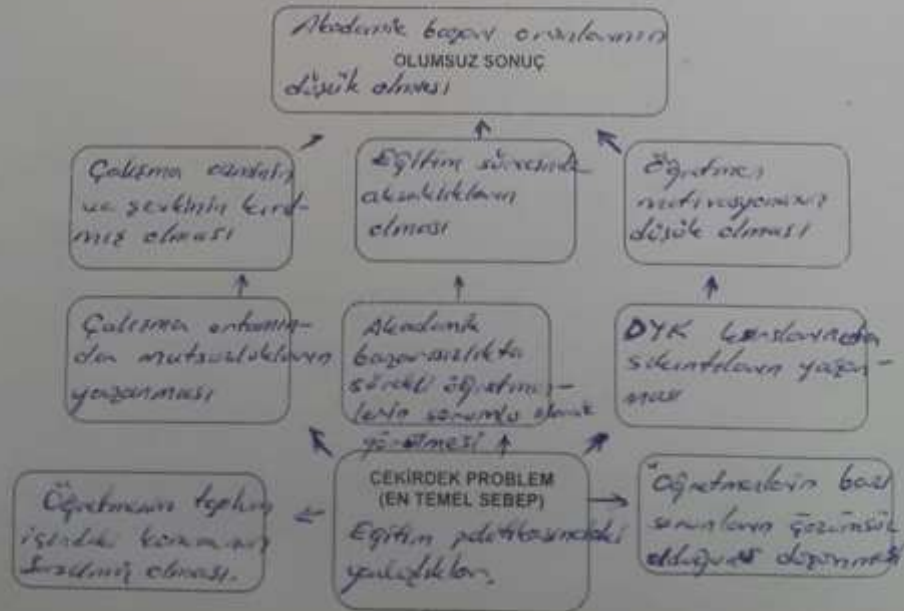 Akademik başarı oranlarının
OLUMSUZ SONUÇ
düşük olması
Çalışma azminin
ve şevkinin kırıl-
mış olması
Eğitim süresinde
aksaklıkların
olması
Öğretmen
motivasyonunun
düşük olması
Çalışma ortamın-
da mutsuzlukların
yaşanması
Akademik
başarısızlıkta
sürekli öğretmen-
lerin sorumlu olarak
görülmesi
DYK kurslarında
sıkıntıların yaşan-
ması
Öğretmenin toplum
içindeki konumunun
olması.
ÇEKİRDEK PROBLEM
(EN TEMEL SEBEP)
Eğitim politikasındaki
yanlışlıklar.
Öğretmenlerin bazı
sorunların çözümsüz
olduğunu düşünmesi